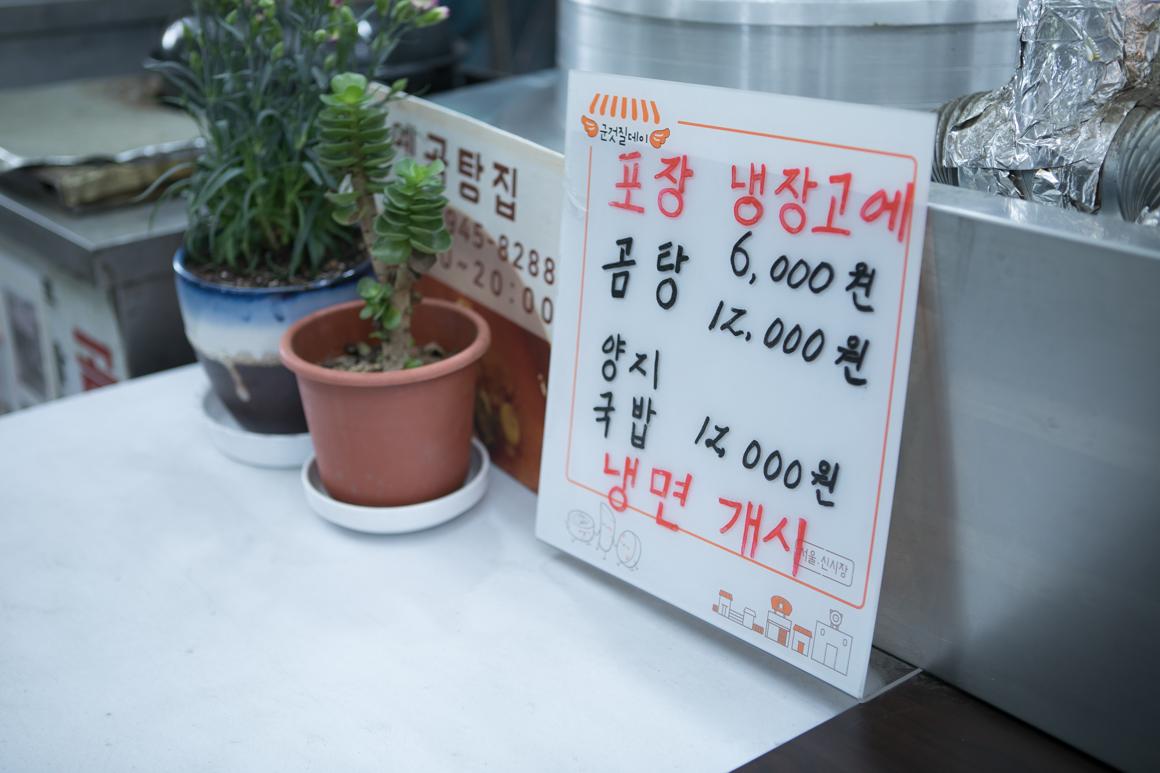 군것질데이
포장 냉장고에
곰탕 6,000원
12,000원
양지
국밥 12,000원
냉면 개시
서울.신시장
곰탕집
945-8288
20:00